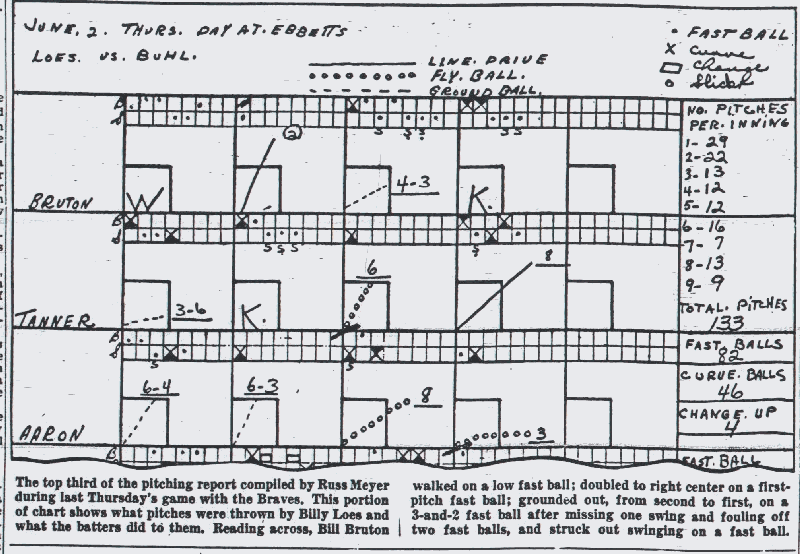 JUNE, 2. THURS. DAY AT. EBBETTS
LOES. VS. BUHL.
LINE. DRIVE
FLY. BALL.
GROUND BALL.
• FAST BALL
X Curve
Change
o Slider
B
S
2
4-3
W
K
BRUTON
B
S
S S S S S
S S S
S
3-6
K.
6
8
TANNER
B
S
S
S
6-4
6-3
8
3
AARON
B
NO. PITCHES
PER. INNING
1- 29
2- 22
3- 13
4- 12
5- 12
6- 16
7- 7
8- 13
9- 9
TOTAL. PITCHES
133
FAST. BALLS
82
CURVE. BALLS
46
CHANGE. UP
4
FAST. BALL
The top third of the pitching report compiled by Russ Meyer
during last Thursday's game with the Braves. This portion
of chart shows what pitches were thrown by Billy Loes and
what the batters did to them. Reading across, Bill Bruton
walked on a low fast ball; doubled to right center on a first-
pitch fast ball; grounded out, from second to first, on a
3-and-2 fast ball after missing one swing and fouling off
two fast balls, and struck out swinging on a fast ball.